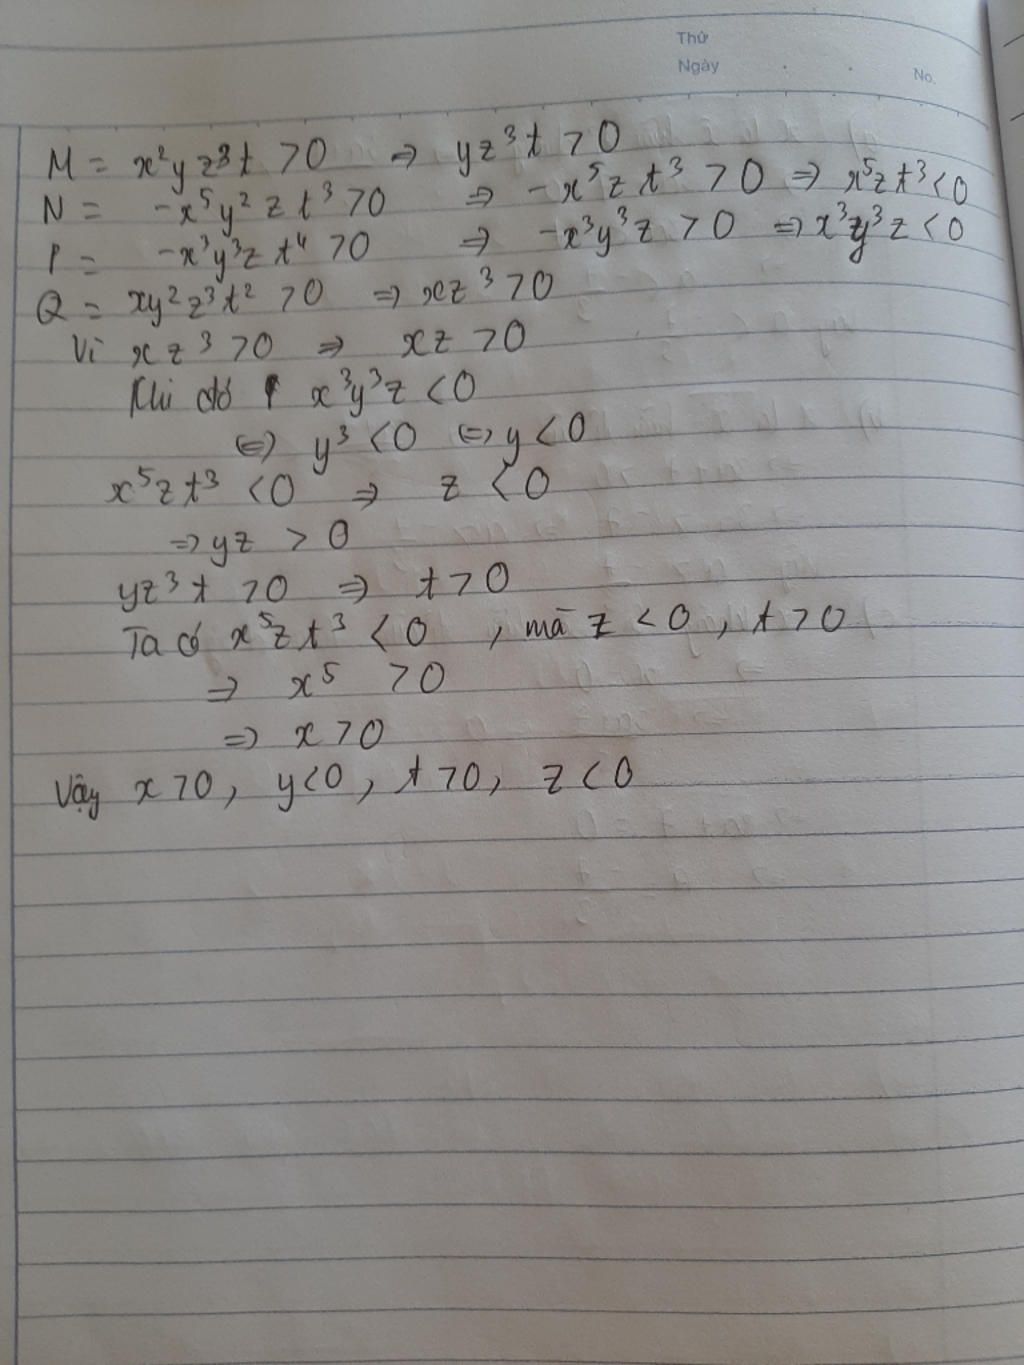 Thứ
Ngày
No.
M = x²yz³t >0 => yz³t >0
N = -x⁵y²zt³ >0 => -x⁵zt³ >0 => x⁵zt³ <0
P = -x³y³zt⁴ >0 => -x³y³z >0 => x³y³z <0
Q = xy²z³t² >0 => xz³ >0
Vì xz³ >0 => xz >0
Khi đó x³y³z <0
<=> y³ <0 <=> y <0
x⁵zt³ <0 => z <0
=> yz > 0
yz³t >0 => t >0
Ta có x⁵zt³ <0 , mà z <0 , t >0
=> x⁵ >0
=> x >0
Vậy x >0, y <0, t >0, z <0